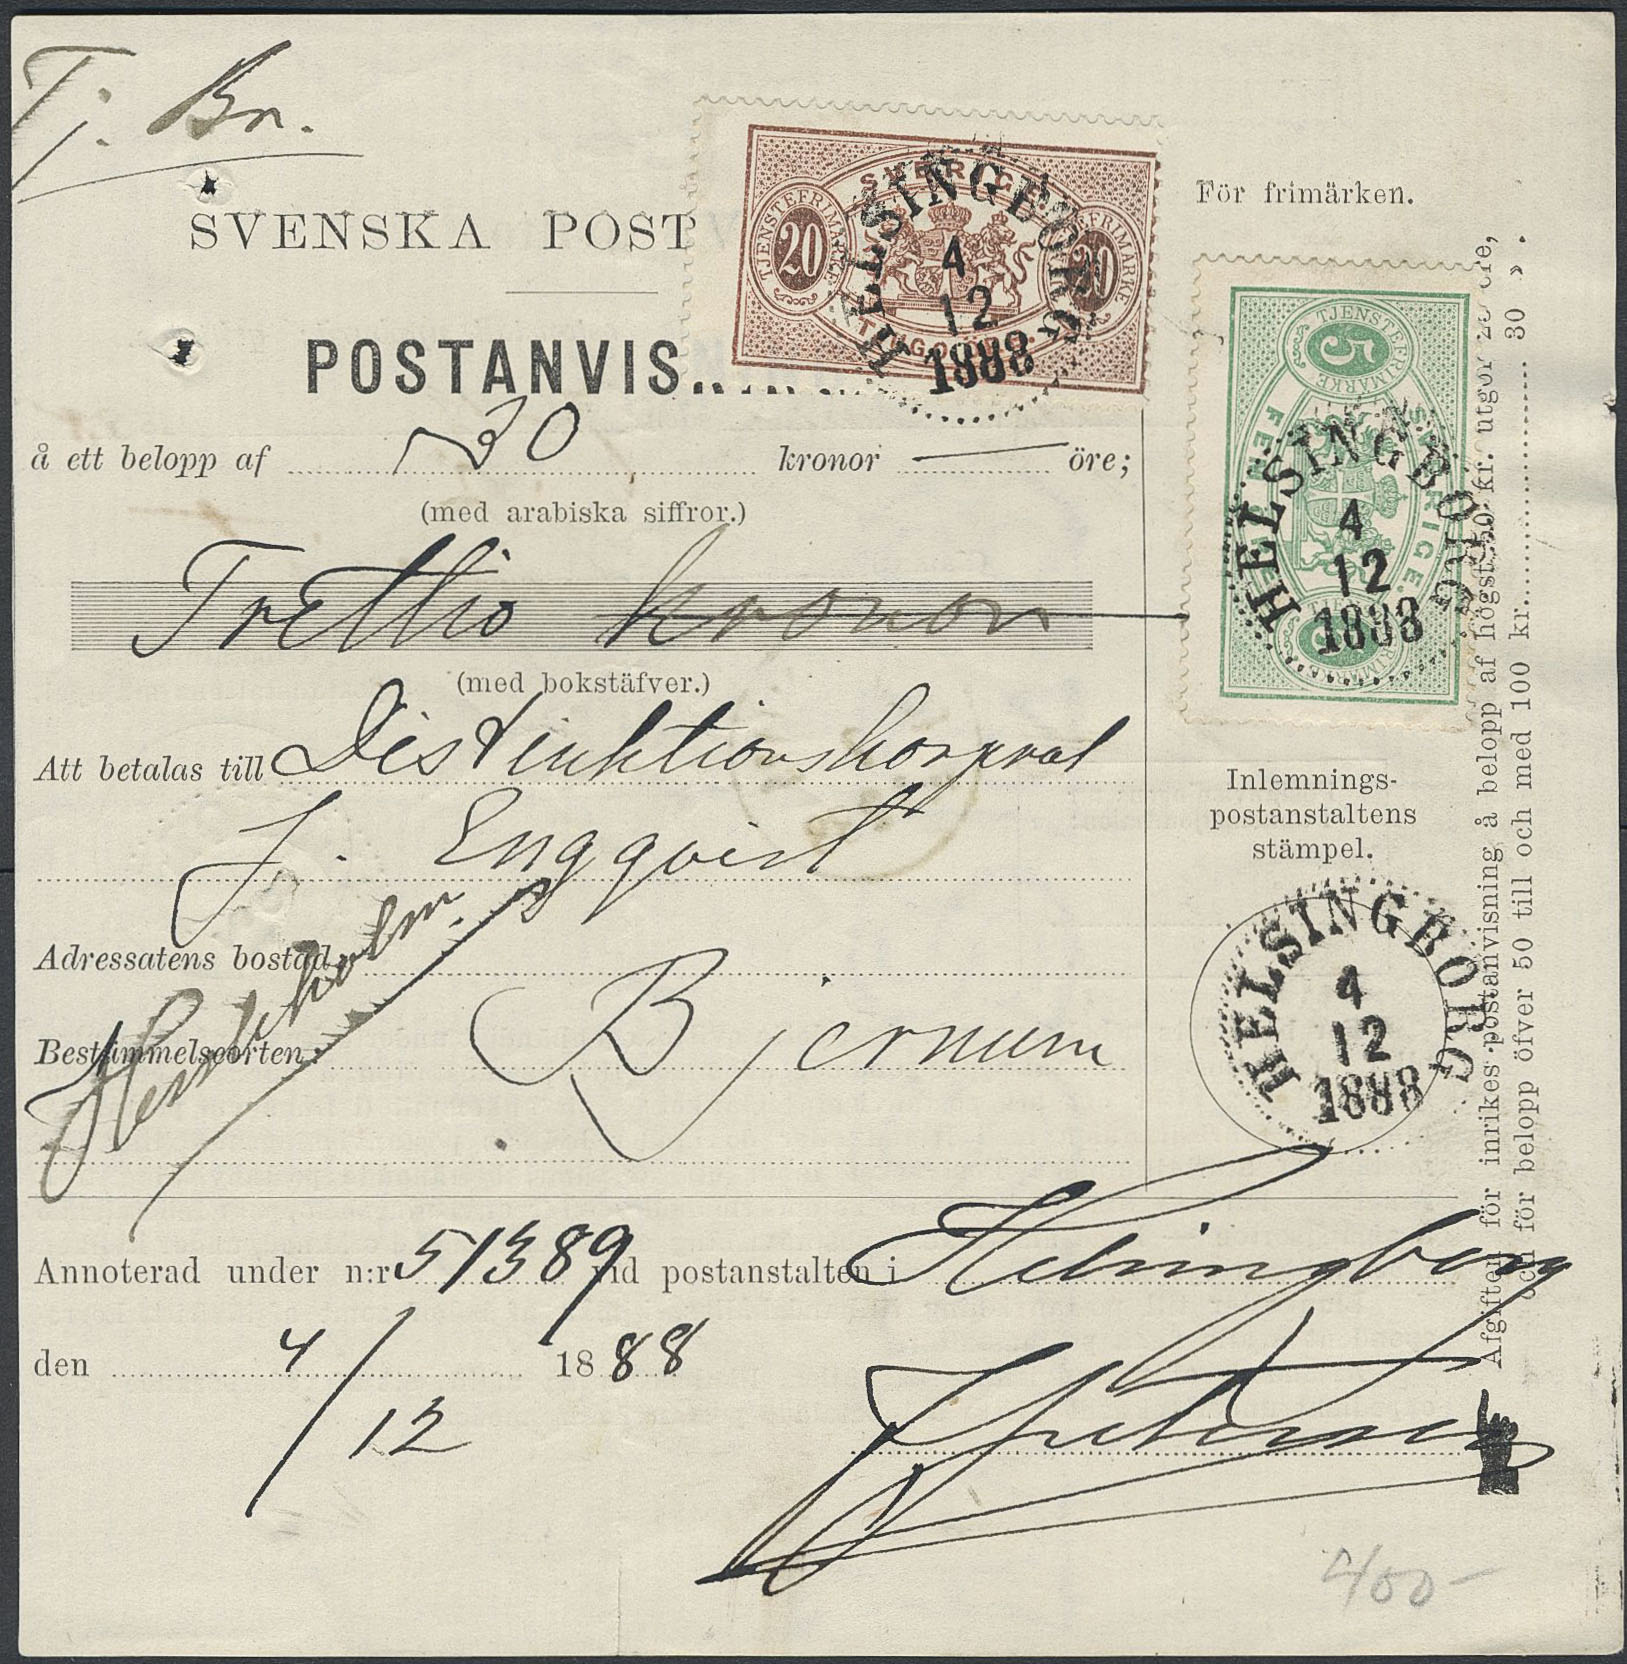 Tj. Bn.
SVENSKA POST
POSTANVIS
å ett belopp af 30 kronor — öre;
(med arabiska siffror.)
Trettio kronor
(med bokstäfver.)
Att betalas till Distinktionskorpral
J. Engqvist
Adressatens bostad
Bestämmelseorten: Bjernum
Annoterad under n:r 51389 vid postanstalten i Helsingborg
den 4/12 1888
SVERIGE
TJENSTEFRIMÄRKE
20
20
FRIMÄRKE
HELSINGBORG
4
12
1888
För frimärken.
TJENSTEFRIMÄRKE
5
SVERIGE
FEM
HELSINGBORG
4
12
1888
Inlemnings-
postanstaltens
stämpel.
HELSINGBORG
4
12
1888
Afgiften för inrikes postanvisning å belopp af högst 50 kr. utgör 20 öre,
och för belopp öfver 50 till och med 100 kr. 30 » .